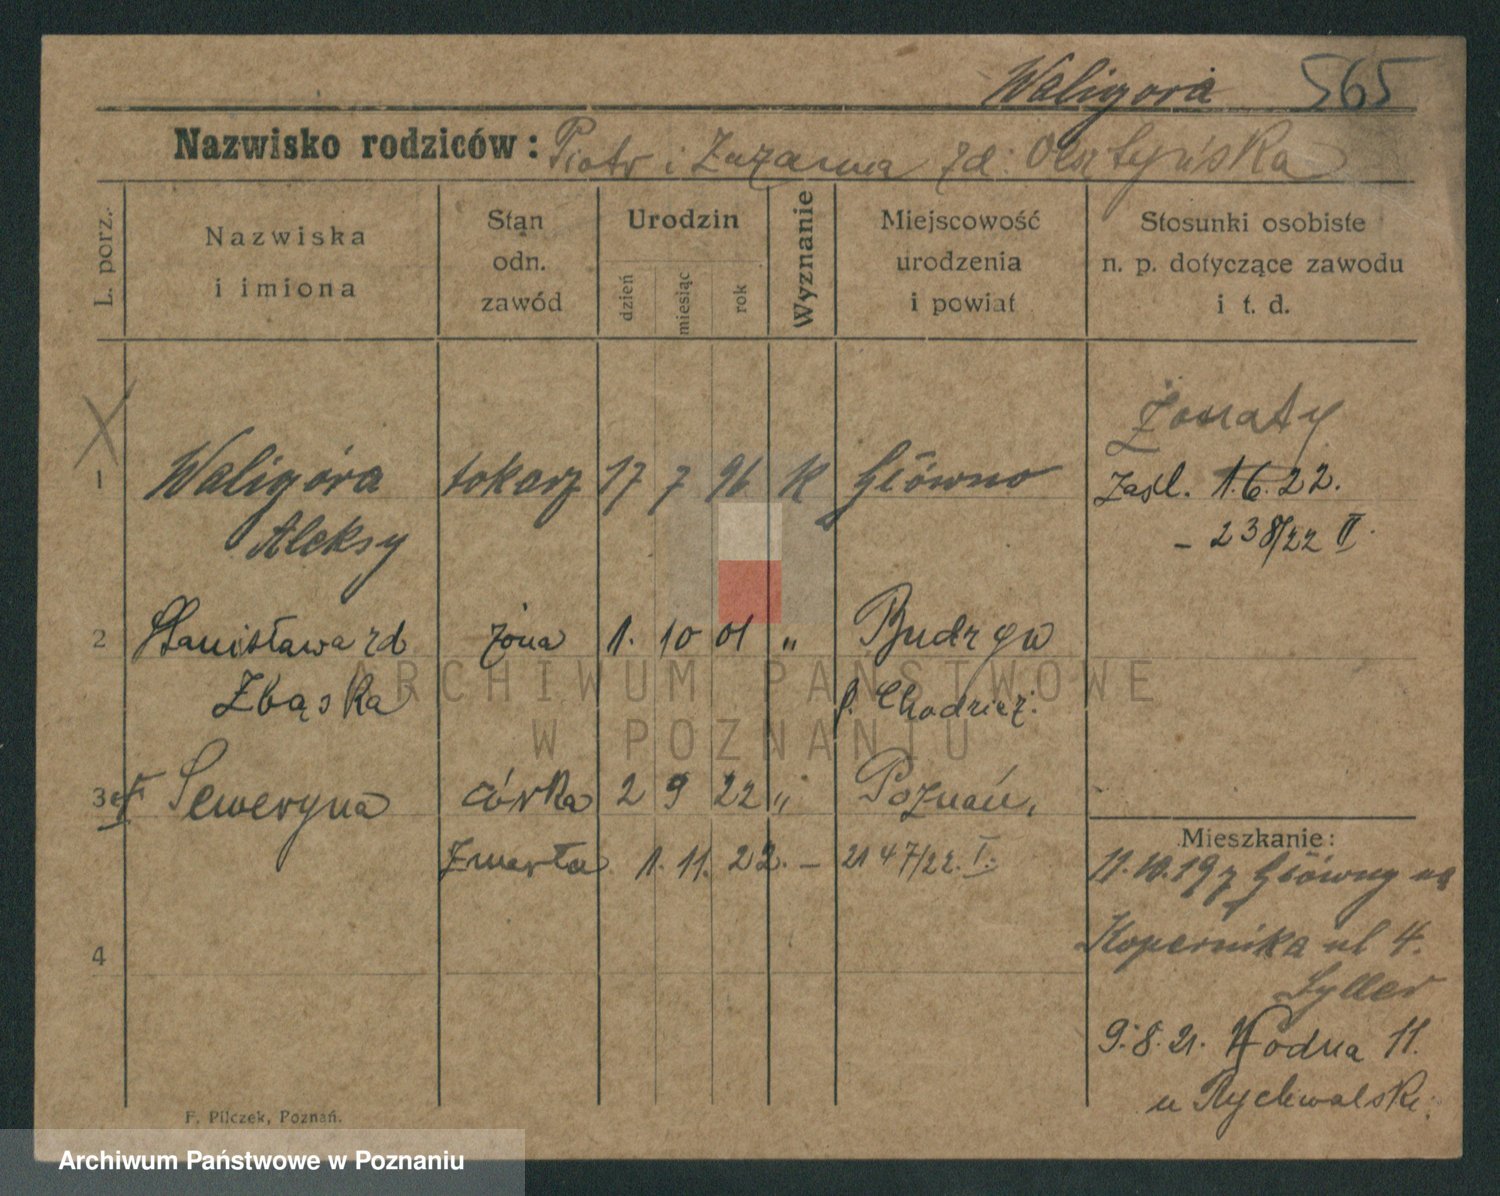 Waligóra 565
Nazwisko rodziców: Piotr i Zuzanna zd. Olsztyńska
L. porz.
Nazwiska i imiona
Stan odn. zawód
Urodzin
dzień miesiąc rok
Wyznanie
Miejscowość urodzenia i powiat
Stosunki osobiste n. p. dotyczące zawodu i t. d.
Żonaty
1 Waligóra tokarz 17 7 96 K Główno Zaśl. 1.6.22.
Aleksy - 238/22 II.
2 Stanisława zd żona 1. 10 01 „ Budzyń
Zbąska p. Chodzież.
3 Seweryna córka 2 9 22 „ Poznań,
Zmarła 1. 11. 22. – 2147/22. I.
Mieszkanie:
11.10.19 z Główny na
Kopernika ul 4.
Syller
4
9.8.21. Wodna 11.
u Rychwalski.
F. Pilczek, Poznań.
ARCHIWUM PAŃSTWOWE
W POZNANIU
Archiwum Państwowe w Poznaniu